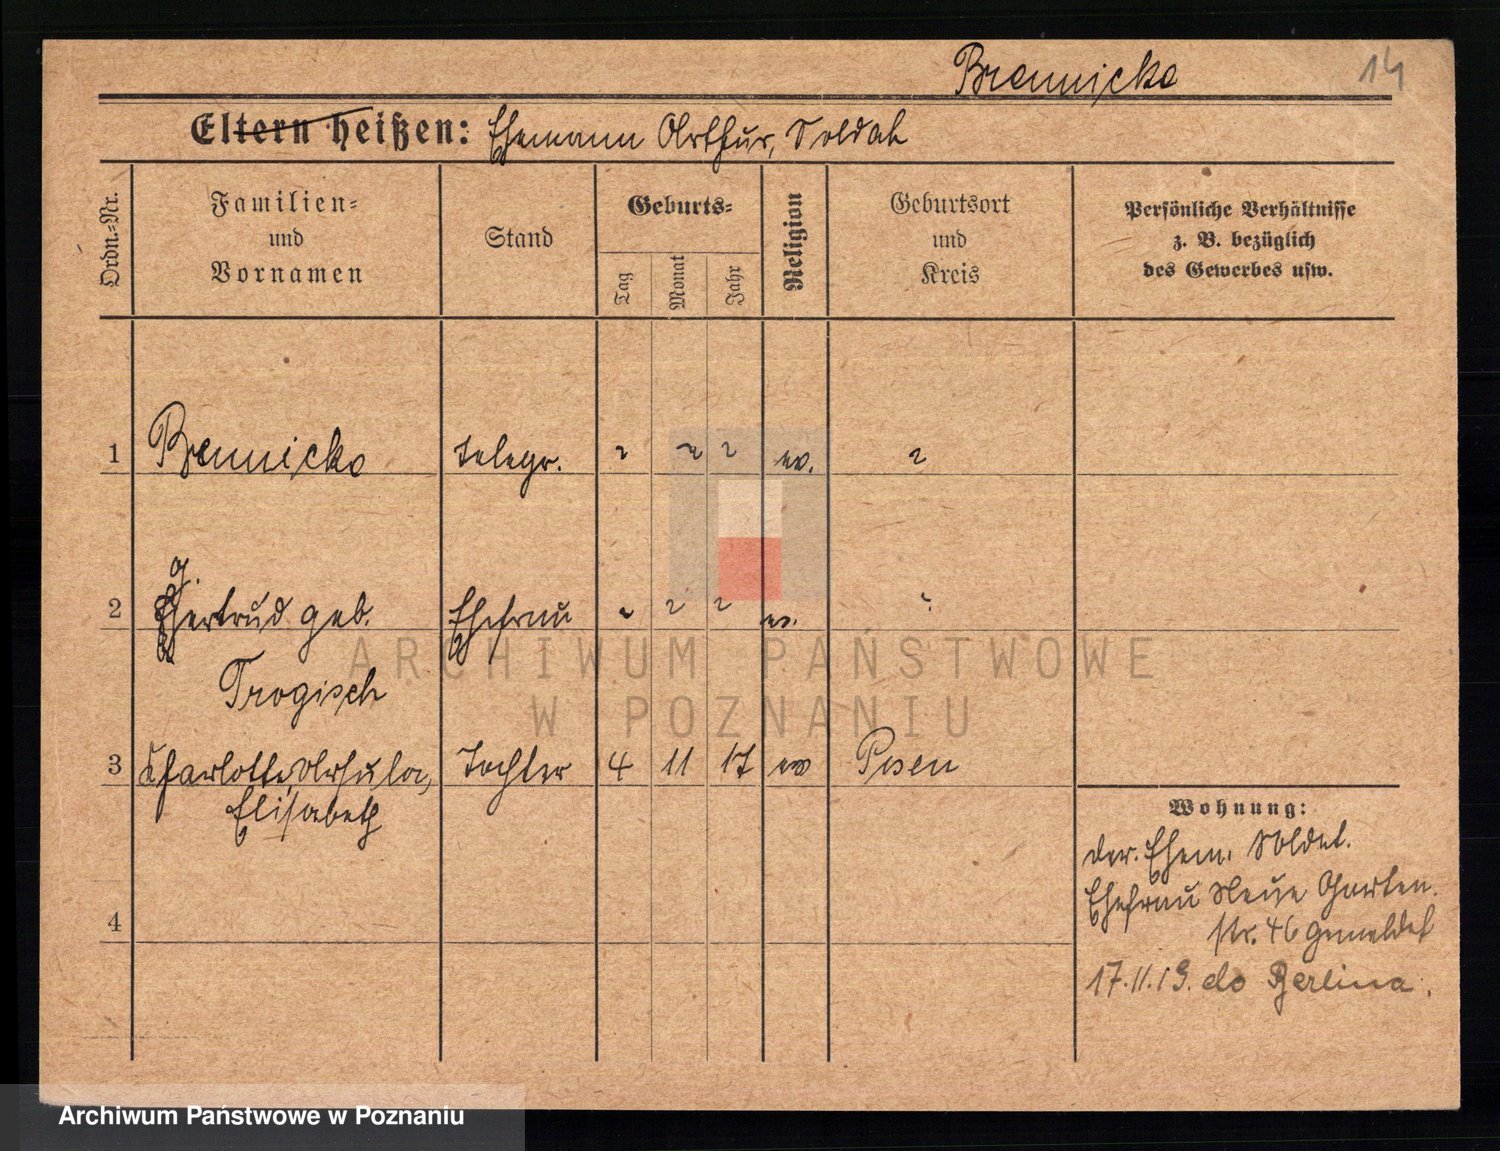 Brennicke
14
Eltern heißen: Ehemann Arthur, Soldat
Ordn.=Nr.
Familien=
und
Vornamen
Stand
Geburts=
Tag
Monat
Jahr
Religion
Geburtsort
und
Kreis
Persönliche Verhältnisse
z. B. bezüglich
des Gewerbes usw.
1 Brennicke telegr. ? ? ? ev. ?
g.
2 Gertrud geb. Ehefrau ? ? ? ev. ?
Trogisch
3 Charlotte, Ursula, Tochter 4 11 17 ev Posen
Elisabeth
4
Wohnung:
der. Ehem. Soldat.
Ehefrau Neue Garten.
str. 46 gemeldet
17.11.19. do Berlina.
ARCHIWUM PAŃSTWOWE
W POZNANIU
Archiwum Państwowe w Poznaniu